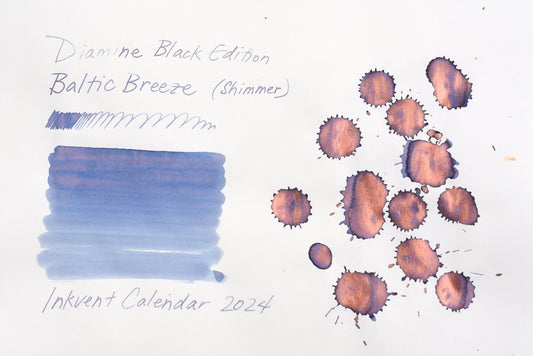 Diamine Black Edition
Baltic Breeze (Shimmer)
Inkvent Calendar 2024